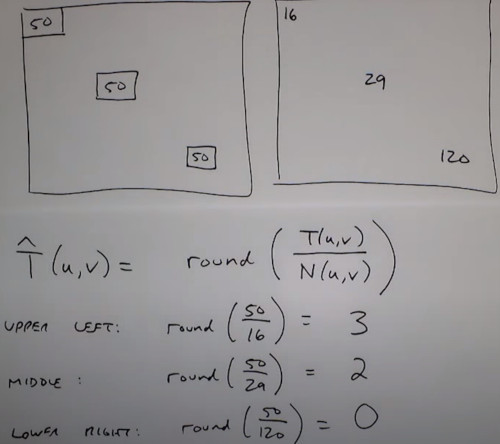 50
16
50
29
50
120
T̂(u,v) = round (T(u,v)/N(u,v))
UPPER LEFT: round (50/16) = 3
MIDDLE: round (50/29) = 2
LOWER RIGHT: round (50/120) = 0